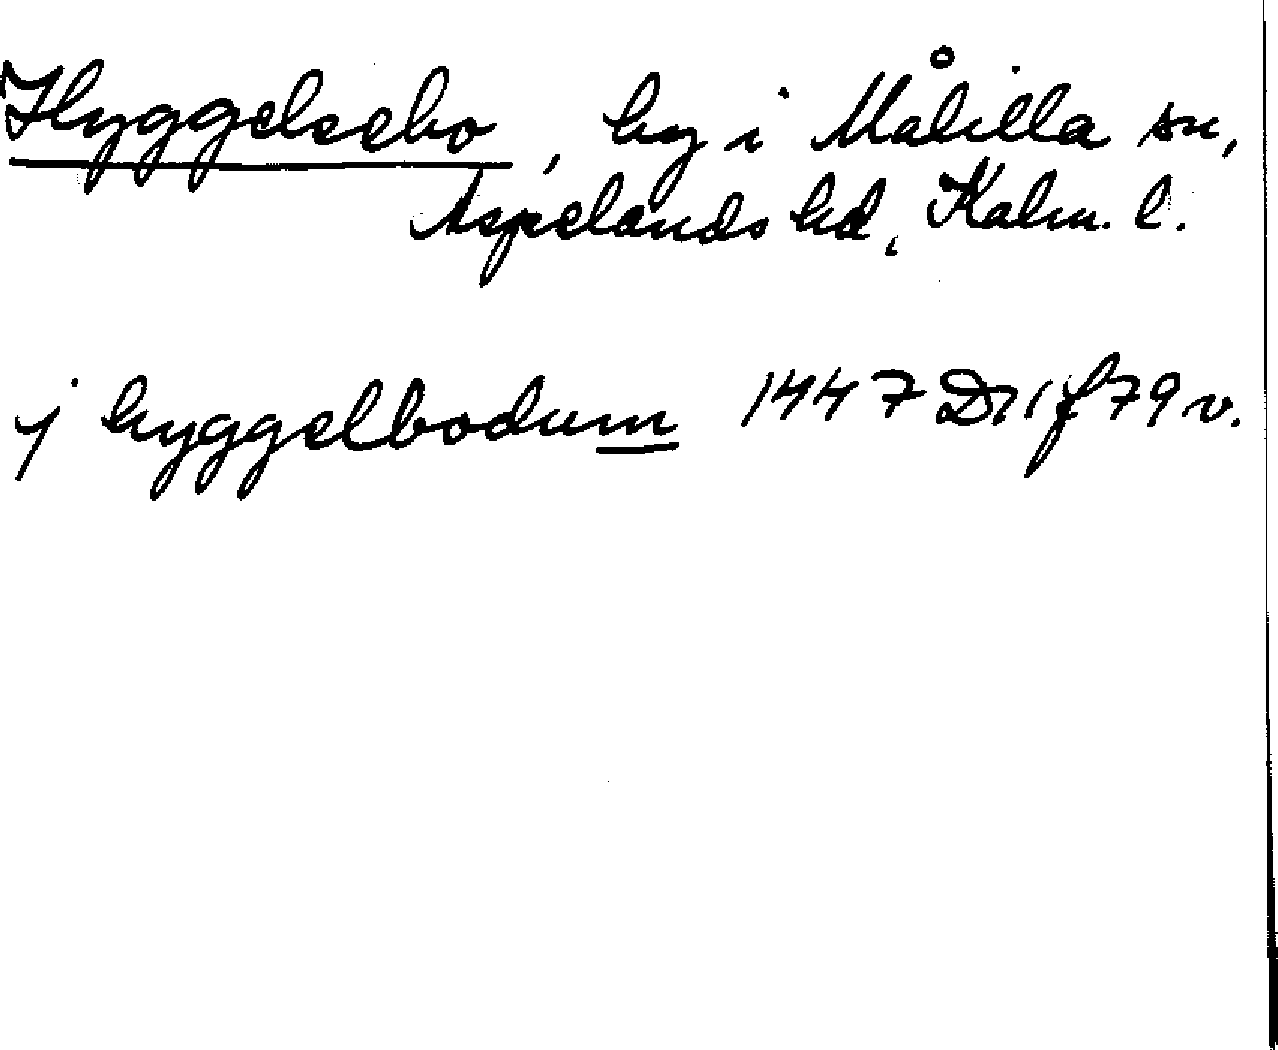 Hyggelsebo, by i Målilla sn,
Aspelands hd, Kalm. l.
j hyggelbodum 1447 D 11 f 79 v.